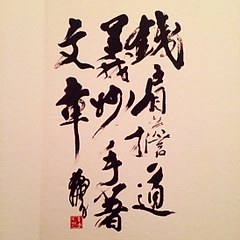 鐵肩擔道
義妙手著
文章